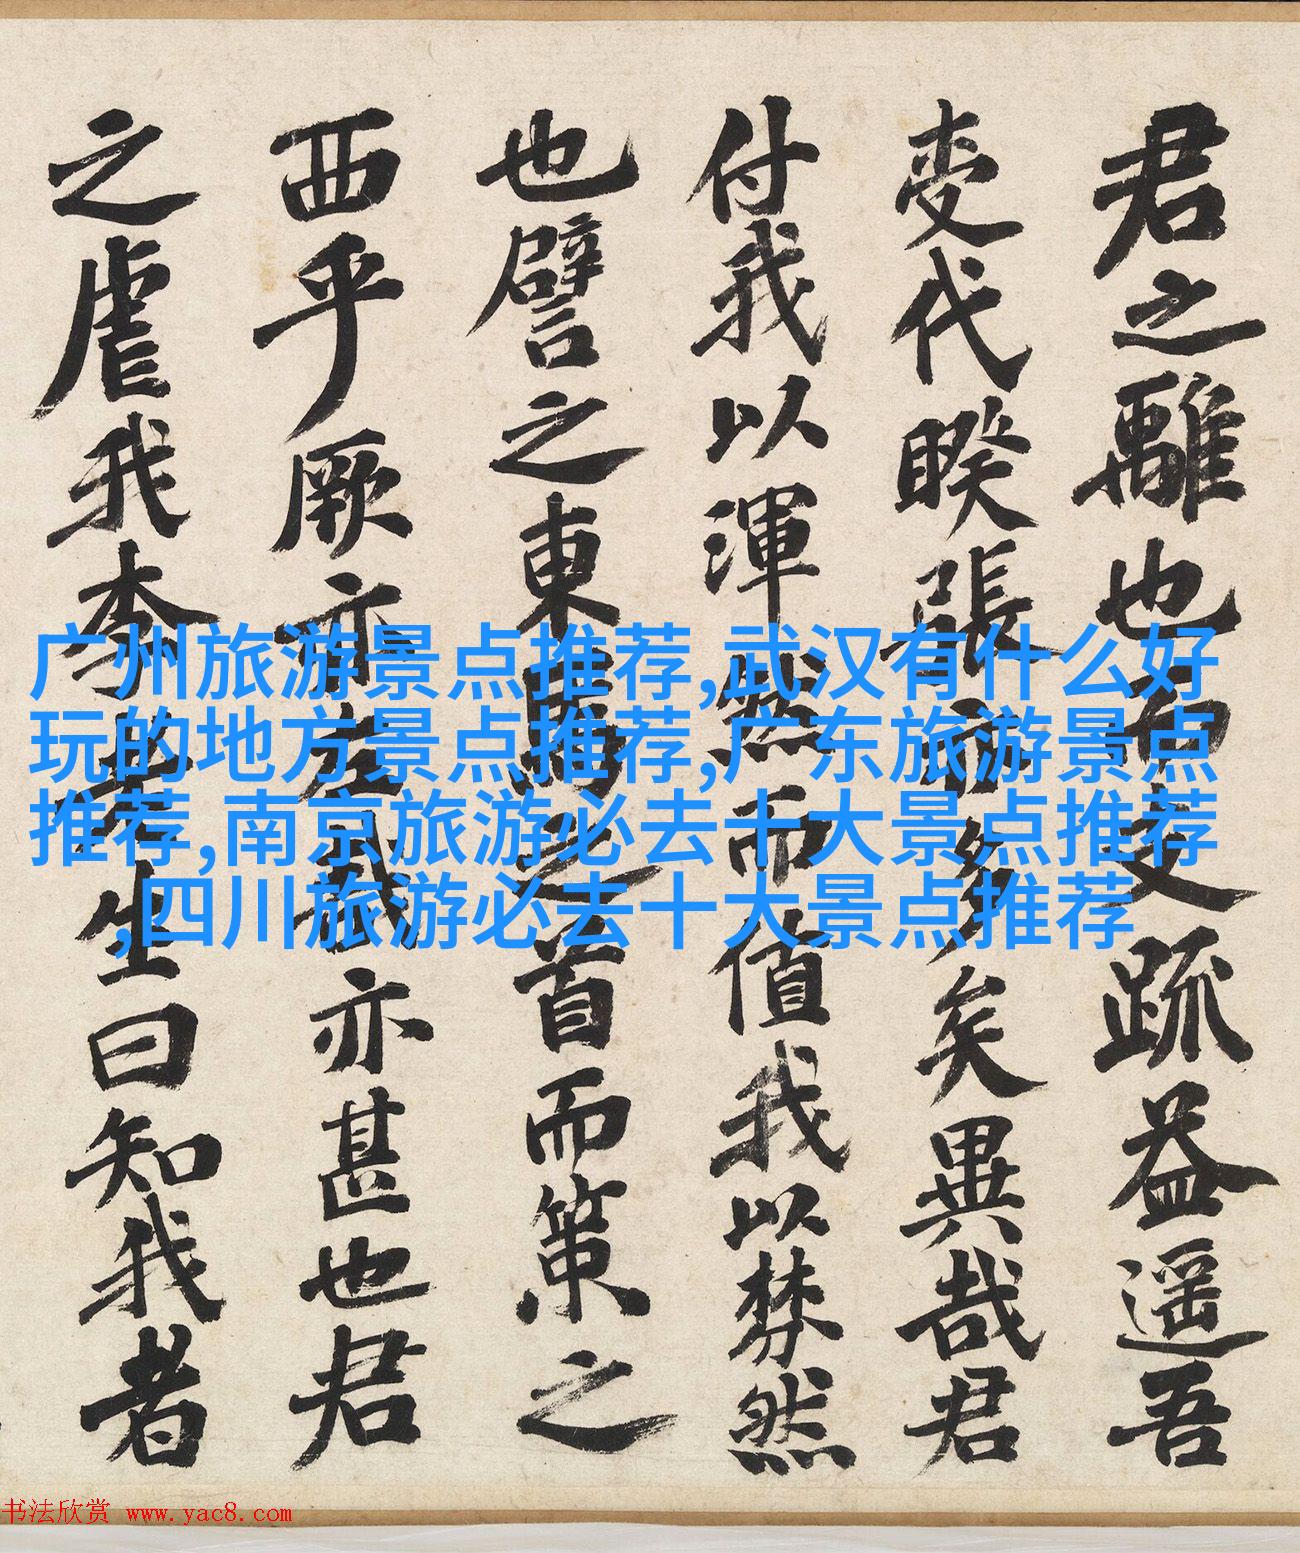 君之離也交疏益遥吾
代睽張多矣異哉君
付我以渾然而值我以棼然
也譬之東馬之首而策之
西乎厥亦左哉亦甚也君
之虐我李生曰知我者
广州旅游景点推荐,武汉有什么好
玩的地方景点推荐,广东旅游景点
推荐,南京旅游必去十大景点推荐
,四川旅游必去十大景点推荐
书法欣赏 www.yac8.com